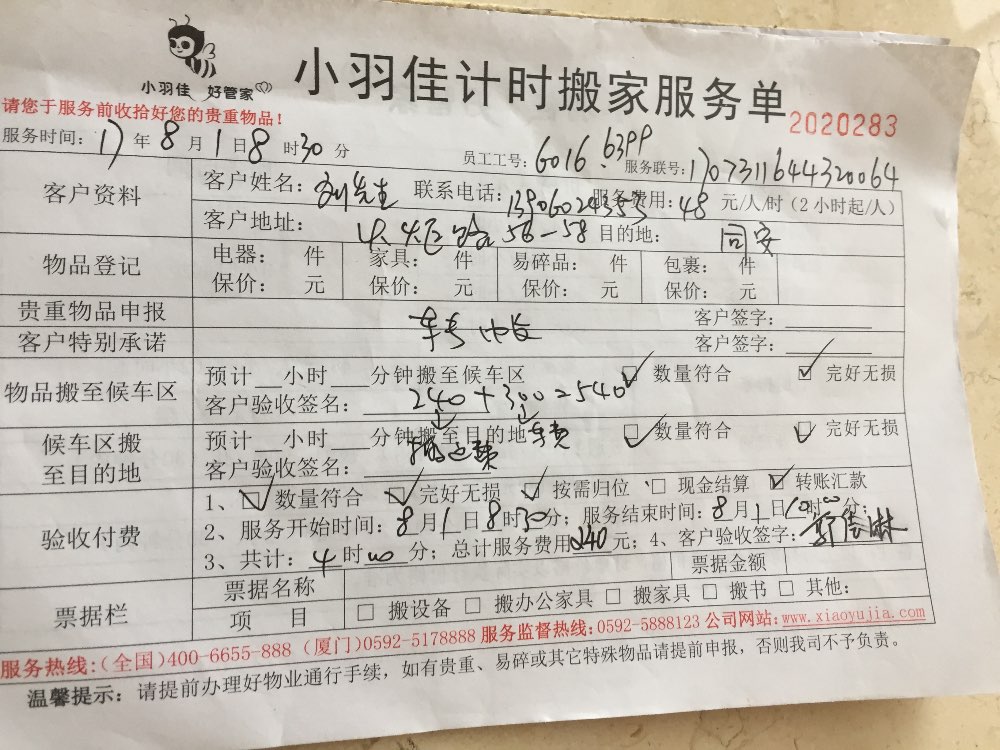 小羽佳 好管家
小羽佳计时搬家服务单
2020283
请您于服务前收拾好您的贵重物品!
服务时间: 17年8月1日8时30分 员工工号: 6016. 服务联号: 1707311644320064
客户资料 客户姓名: 刘先生 联系电话: 服务费用: 48 元/人/时 (2小时起/人)
客户地址: 火炬路56-58 目的地: 同安
物品登记 电器: 件 家具: 件 易碎品: 件 包裹: 件
保价: 元 保价: 元 保价: 元 保价: 元
贵重物品申报 客户签字:
客户特别承诺 客户签字:
物品搬至候车区 预计 小时 分钟搬至候车区 ☑ 数量符合 ☑ 完好无损
客户验收签名: 240+300=540
候车区搬至目的地 预计 小时 分钟搬至目的地 车费 ☑ 数量符合 ☑ 完好无损
客户验收签名: 搬运费
验收付费 1、☑ 数量符合 ☑ 完好无损 ☑ 按需归位 □ 现金结算 ☑ 转账汇款
2、服务开始时间: 8月1日8时30分; 服务结束时间: 8月1日10时00分;
3、共计: 4时00分; 总计服务费用240元; 4、客户验收签字:
票据栏 票据名称 票据金额
项 目 □ 搬设备 □ 搬办公家具 □ 搬家具 □ 搬书 □ 其他:
服务热线:(全国)400-6655-888 (厦门)0592-5178888 服务监督热线:0592-5888123 公司网站:www.xiaoyujia.com
温馨提示: 请提前办理好物业通行手续, 如有贵重、易碎或其它特殊物品请提前申报, 否则我司不予负责。